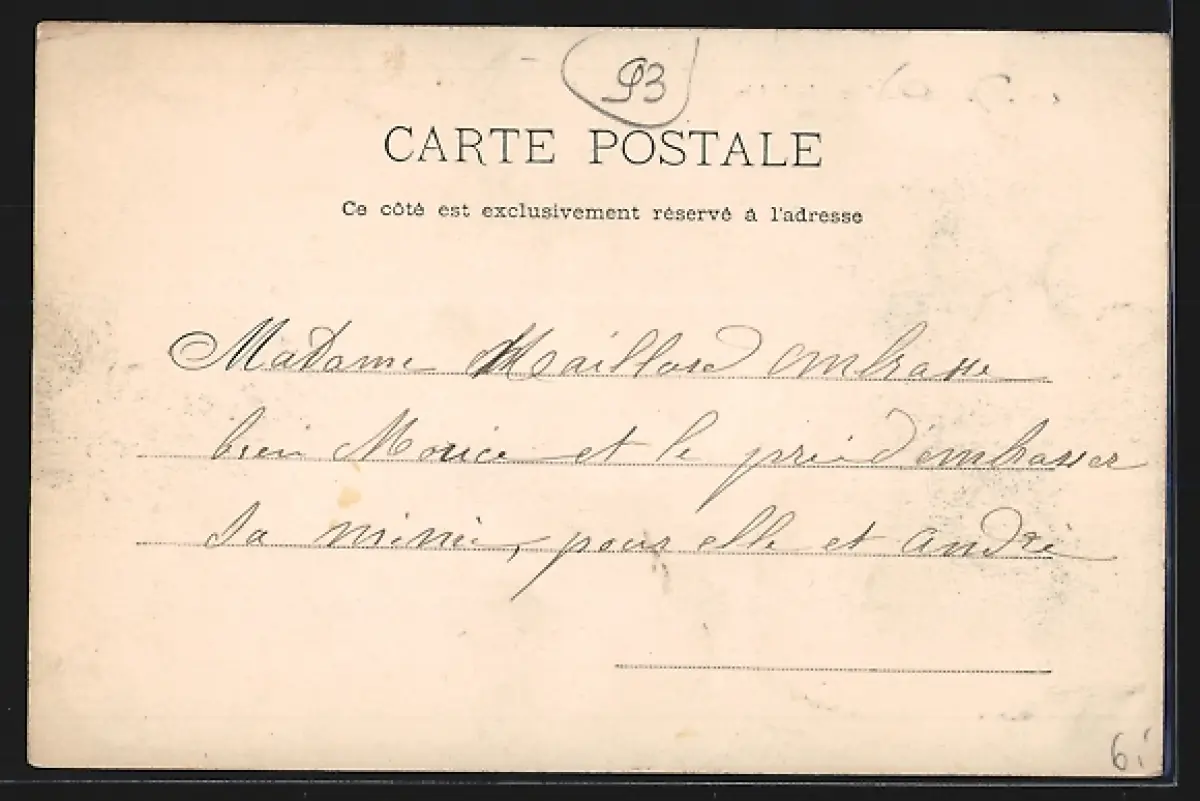 93
CARTE POSTALE
Ce côté est exclusivement réservé à l'adresse
Madame Maillard embrasse
bien Moricé et le prie d'embrasser
sa mimie, pour elle et andré
6